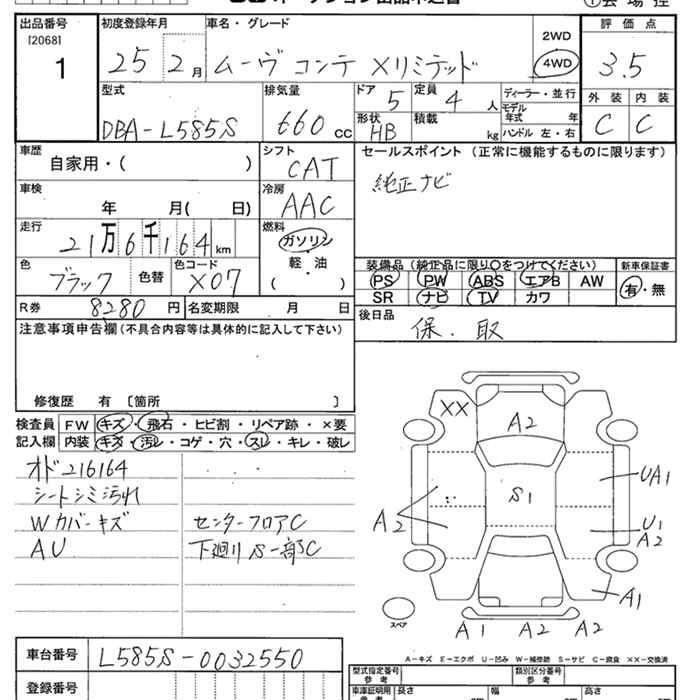 出品番号
[2068]
1
初度登録年月
25 2月
車名・グレード
ムーヴ コンテ Xリミテッド
2WD
4WD
評価点
3.5
型式
DBA-L585S
排気量
660 CC
ドア
5
定員
4 人
ディーラー・並行
モデル
年式 年
ハンドル 左・右
形状
HB
積載
kg
外装 内装
C C
車歴
自家用・( )
シフト
CAT
セールスポイント (正常に機能するものに限ります)
純正ナビ
車検
年 月( 日)
冷房
AAC
走行
21万6千164km
燃料
ガソリン
軽・油
( ・ )
色
ブラック
色替
色コード
X07
装備品 (純正品に限り○をつけてください)
PS PW ABS エアB AW
SR ナビ TV カワ
新車保証書
有・無
R券 8280 円
名変期限 月 日
後日品
保.取
注意事項申告欄(不具合内容等は具体的に記入して下さい)
修復歴 有 〔箇所 〕
検査員
記入欄
FW キズ・飛石・ヒビ割・リペア跡・×要
内装 キズ・汚レ・コゲ・穴・スレ・キレ・破レ
オド216164
シートシミ汚れ
Wカバーキズ
センターフロアC
AU
下廻りS一部C
XX
A2
S1
A2
UA1
U1
A2
A1
スペア
A1 A2 A2
A-キズ E-エクボ U-凹み W-補修跡 S-サビ C-腐食 XX-交換済
車台番号
L585S-0032550
登録番号
型式指定番号
参考
類別区分番号
参考
車庫証明用
参考
長さ
幅
高さ